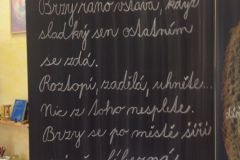 Brzy ráno vstává, když
sladký sen ostatním
se zdá.
Roztopí, zadělá, uhněte...
Nic z toho nesplete.
Brzy se po městě šíří